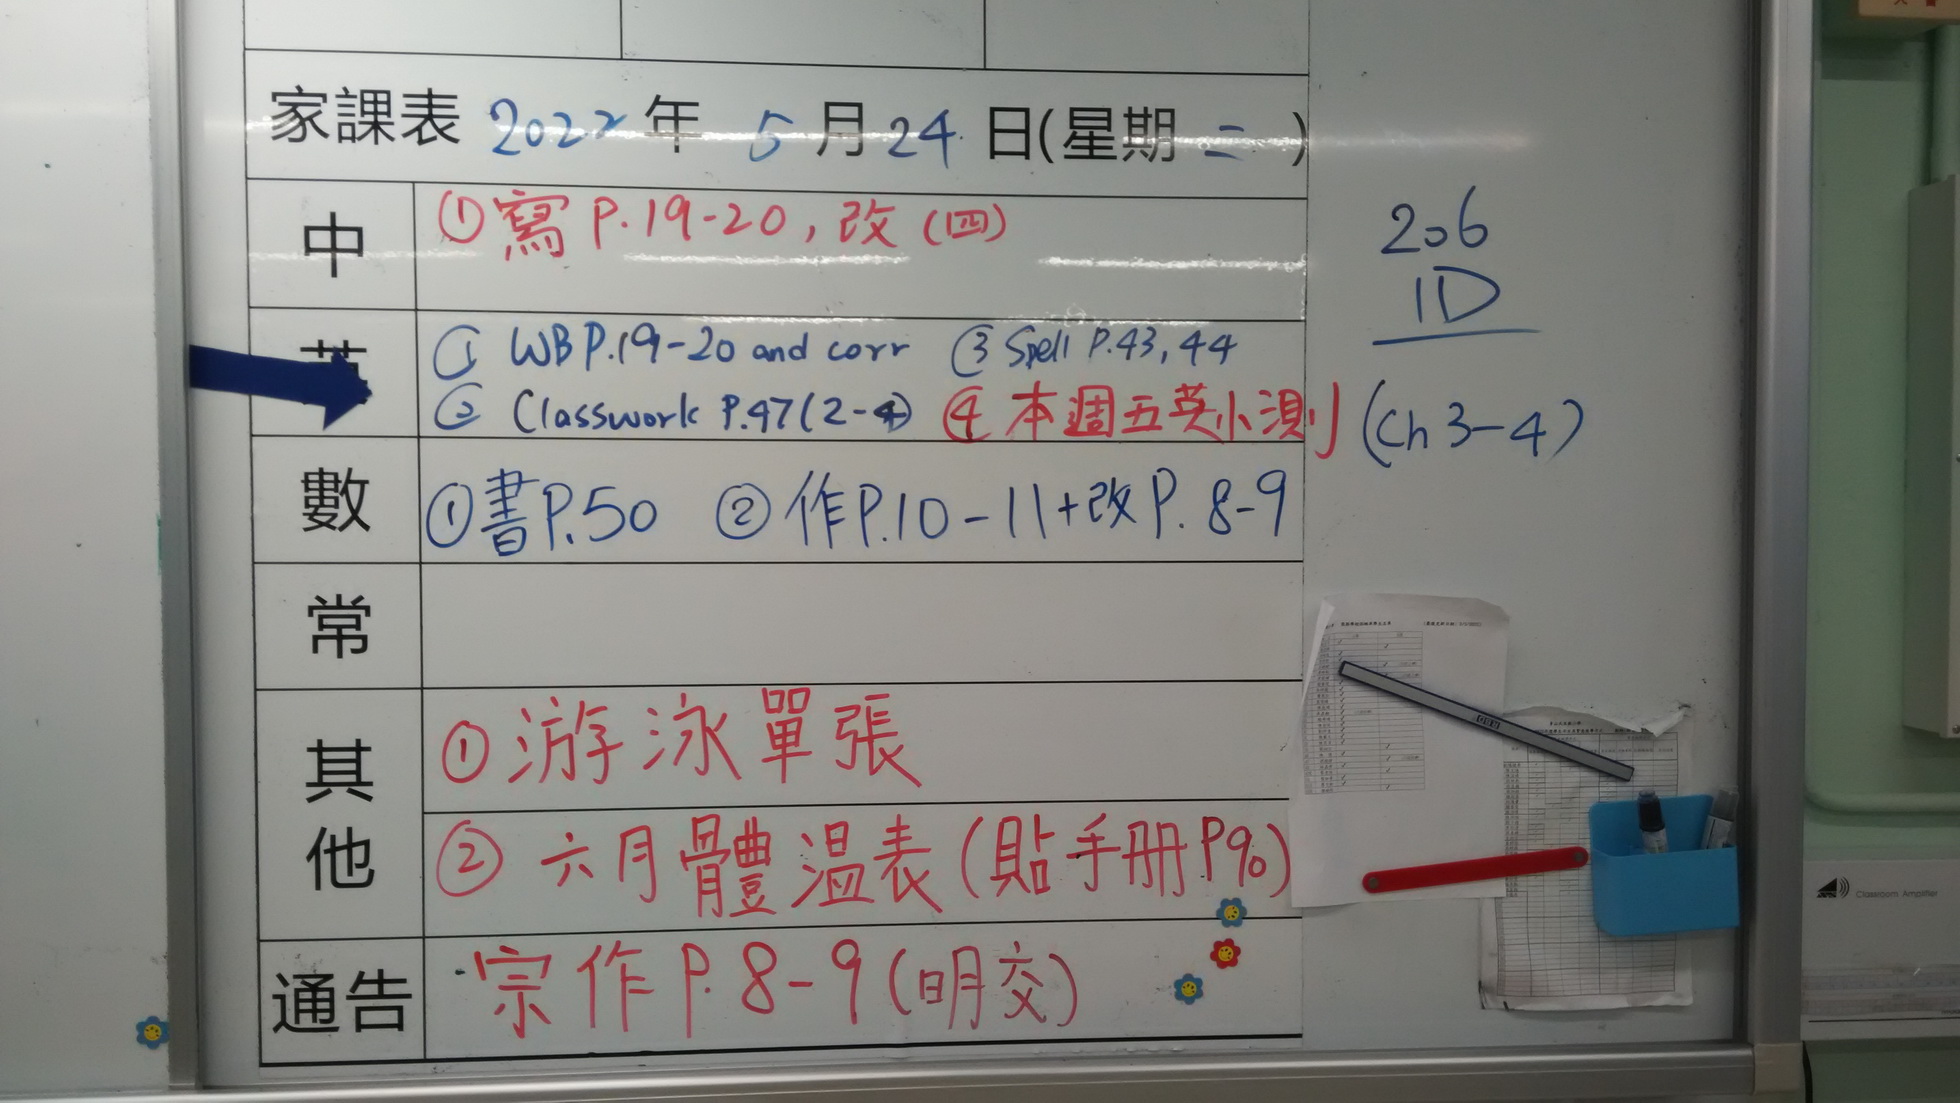 家課表 2022 年 5 月 24 日(星期 二 )
中
①寫 P.19-20, 改 (四)
206
1D
英
① WB P.19-20 and corr ③ Spell P.43, 44
② Classwork P.47(2-4) ④ 本週五英小測 (Ch 3-4)
數
①書P.50 ② 作P.10-11+改P. 8-9
常
其他
①游泳單張
② 六月體溫表(貼手册P90)
通告
宗作P.8-9(明交)
Classroom Amplifier